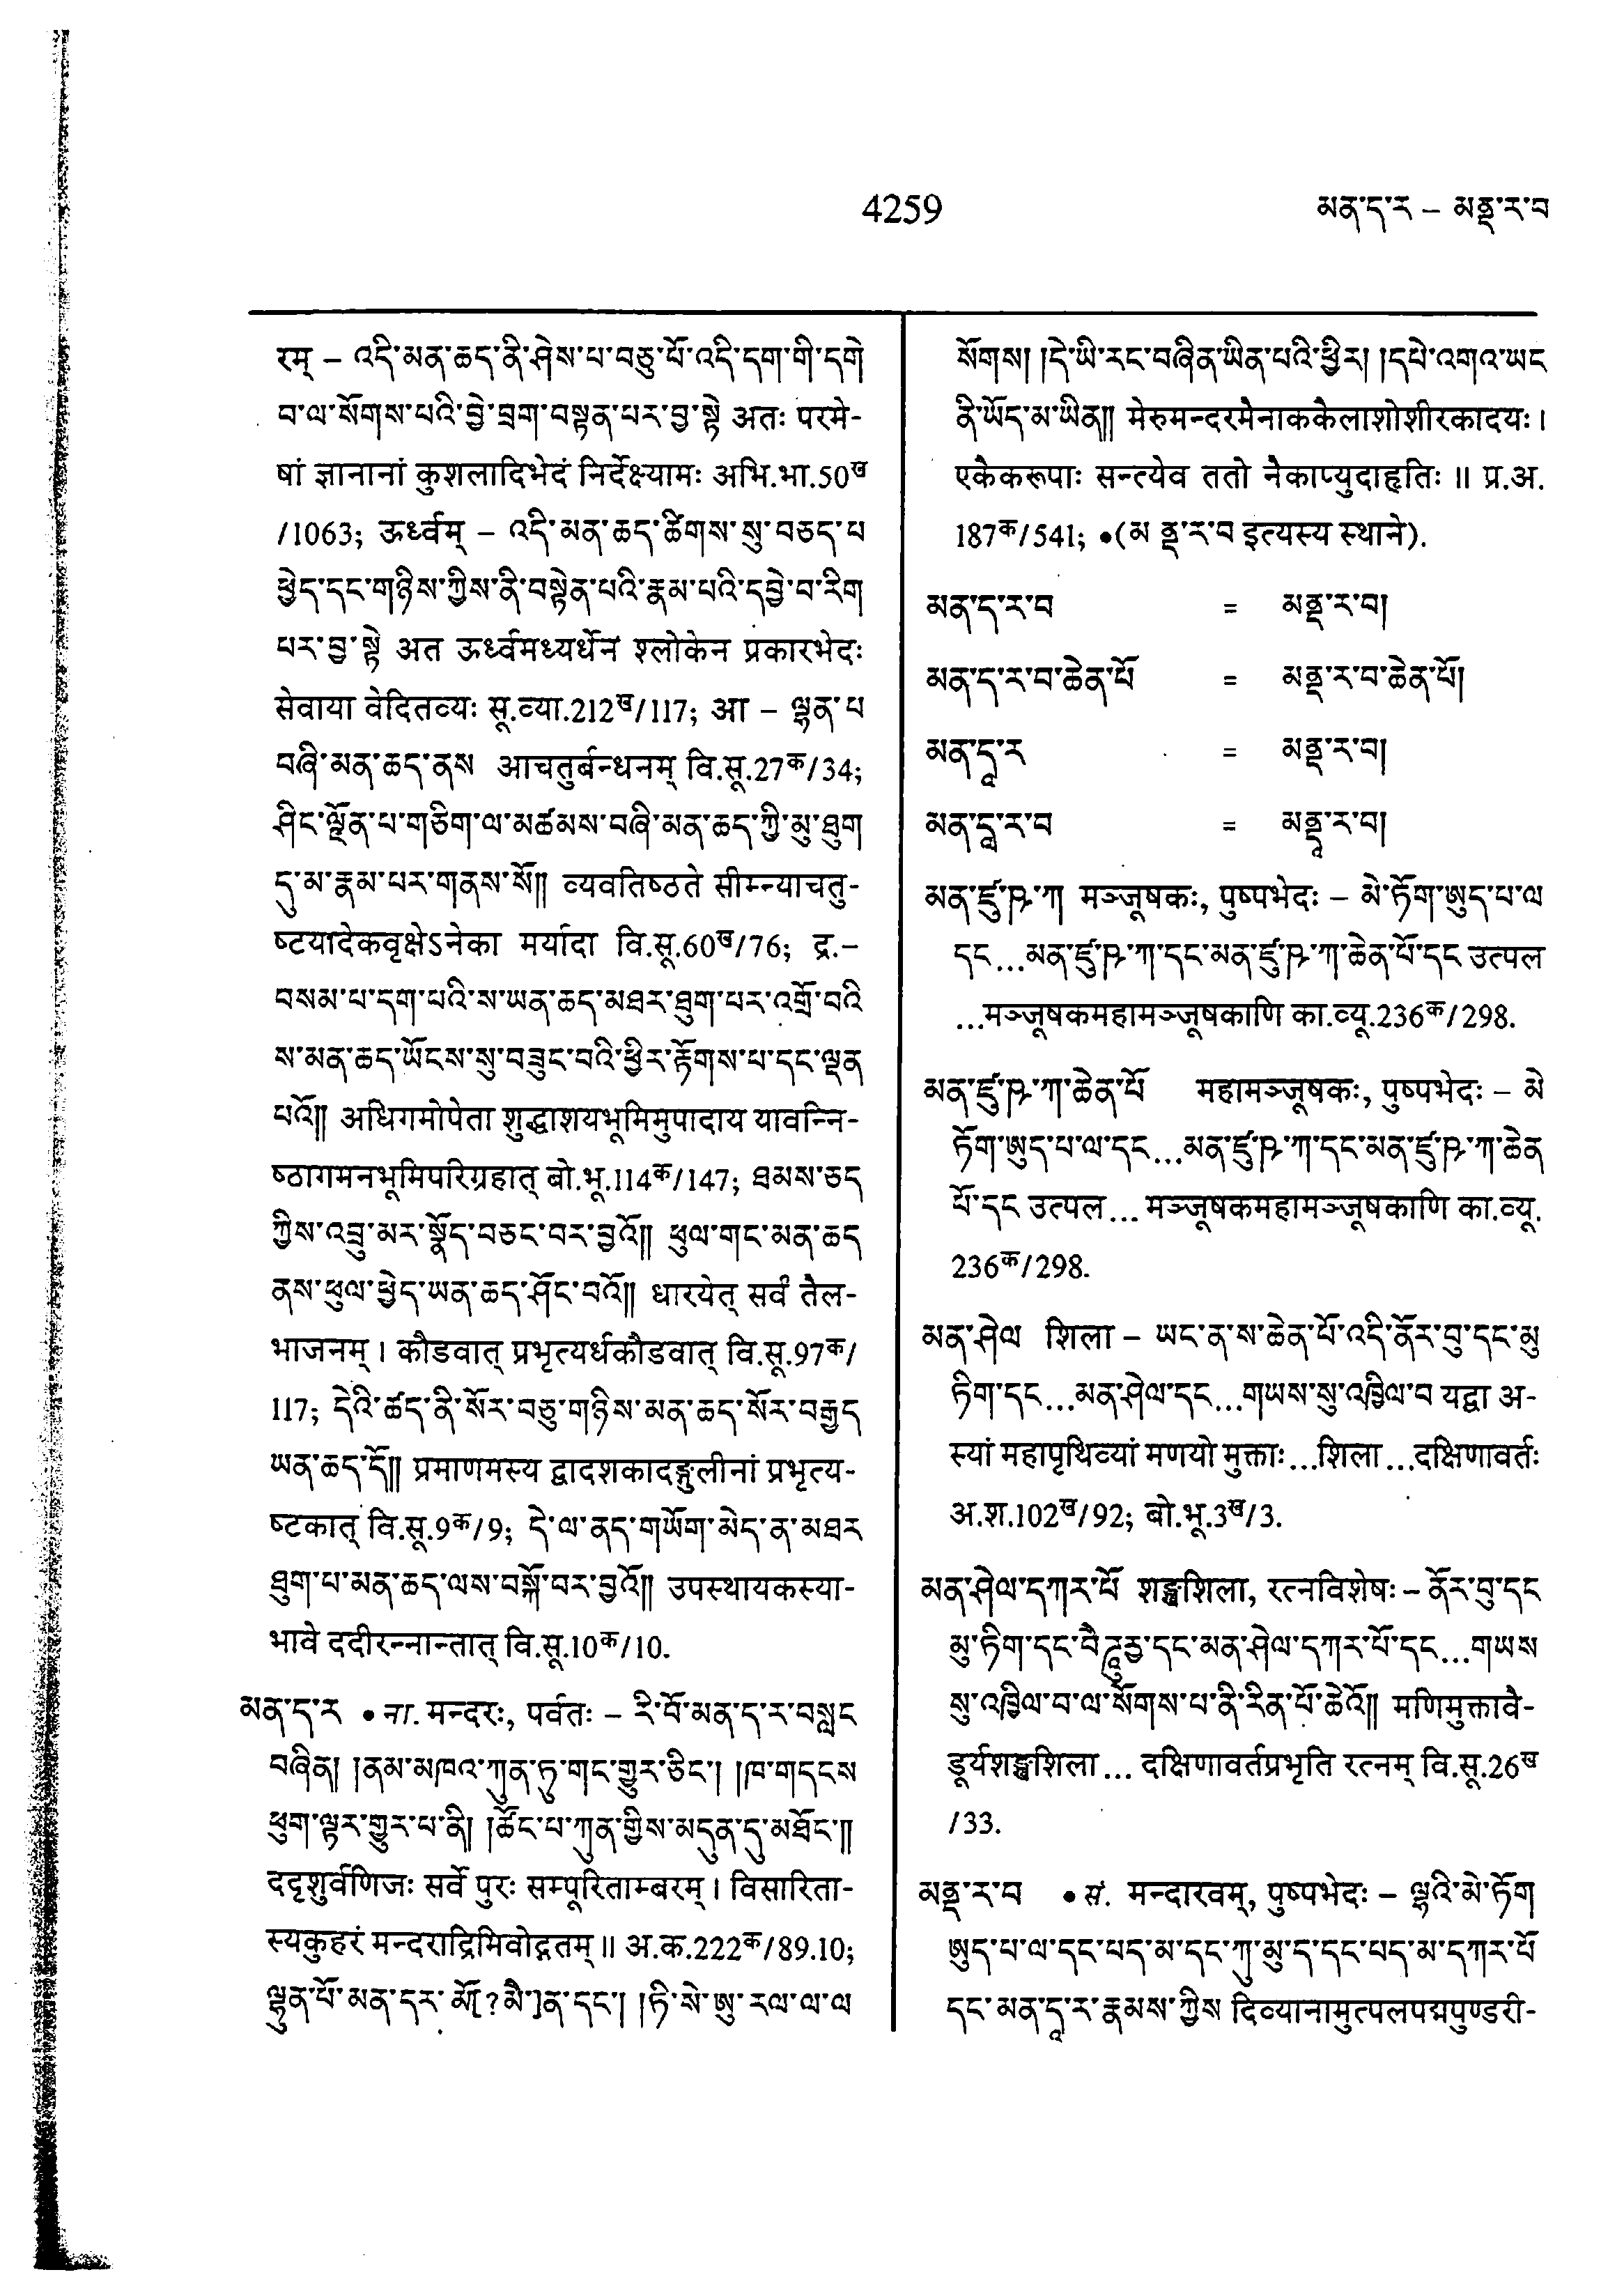 4259
མན་ད་ར – མནྡ་ར་བ
रम् – འདི་མན་ཆད་ནི་ཤེས་པ་བཅུ་པོ་འདི་དག་གི་དགེ
བ་ལ་སོགས་པའི་བྱེ་བྲག་བསྟན་པར་བྱ་སྟེ अतः परमे-
षां ज्ञानानां कुशलादिभेदं निर्देक्ष्यामः अभि.भा.50ख
/1063; ऊर्ध्वम् – འདི་མན་ཆད་ཚིགས་སུ་བཅད་པ
ཕྱེད་དང་གཉིས་ཀྱིས་ནི་བསྟེན་པའི་རྣམ་པའི་དབྱེ་བ་རིག
པར་བྱ་སྟེ अत ऊर्ध्वमध्यर्धेन श्लोकेन प्रकारभेदः
सेवाया वेदितव्यः सू.व्या.212ख/117; आ – ལྷན་པ
བཞི་མན་ཆད་ནས आचतुर्बन्धनम् वि.सू.27क/34;
ཤིང་ལྗོན་པ་གཅིག་ལ་མཚམས་བཞི་མན་ཆད་ཀྱི་མུ་ཐུག
དུ་མ་རྣམ་པར་གནས་སོ།། व्यवतिष्ठते सीम्न्याचतु-
ष्टयादेकवृक्षेऽनेका मर्यादा वि.सू.60ख/76; द्र.–
བསམ་པ་དག་པའི་ས་ཡན་ཆད་མཐར་ཐུག་པར་འགྲོ་བའི
ས་མན་ཆད་ཡོངས་སུ་བཟུང་བའི་ཕྱིར་རྟོགས་པ་དང་ལྡན
པའོ།། अधिगमोपेता शुद्धाशयभूमिमुपादाय यावन्नि-
ष्ठागमनभूमिपरिग्रहात् बो.भू.114क/147; ཐམས་ཅད
ཀྱིས་འབྲུ་མར་སྣོད་བཅང་བར་བྱའོ།། ཕུལ་གང་མན་ཆད
ནས་ཕུལ་ཕྱེད་ཡན་ཆད་ཤོང་བའོ།། धारयेत् सर्वं तैल-
भाजनम् । कौडवात् प्रभृत्यर्धकौडवात् वि.सू.97क/
117; དེའི་ཚད་ནི་སོར་བཅུ་གཉིས་མན་ཆད་སོར་བརྒྱད
ཡན་ཆད་དོ།། प्रमाणमस्य द्वादशकादङ्गुलीनां प्रभृत्य-
ष्टकात् वि.सू.9क/9; དེ་ལ་ནད་གཡོག་མེད་ན་མཐར
ཐུག་པ་མན་ཆད་ལས་བསྐོ་བར་བྱའོ།། उपस्थायकस्या-
भावे ददीरन्नान्तात् वि.सू.10क/10.
མན་ད་ར • ना. मन्दरः, पर्वतः – རི་བོ་མན་ད་ར་བསླང
བཞིན། །ནམ་མཁའ་ཀུན་ཏུ་གང་གྱུར་ཅིང་། །ཁ་གདངས
ཕུག་ལྟར་གྱུར་པ་ནི། །ཚོང་པ་ཀུན་གྱིས་མདུན་དུ་མཐོང་།།
ददृशुर्वणिजः सर्वे पुरः सम्पूरिताम्बरम् । विसारिता-
स्यकुहरं मन्दराद्रिमिवोद्गतम् ॥ अ.क.222क/89.10;
ལྷུན་པོ་མན་དར་མོ[?མཻ་]ན་དང་། །ཏི་སེ་ཨུ་རལ་ལ་ལ
སོགས། །དེ་ཡི་རང་བཞིན་ཡིན་པའི་ཕྱིར། །དཔེ་འགའ་ཡང
ནི་ཡོད་མ་ཡིན།། मेरुमन्दरमैनाककैलाशोशीरकादयः ।
एकैकरूपाः सन्त्येव ततो नैकाप्युदाहृतिः ॥ प्र.अ.
187क/541; •(མནྡ་ར་བ इत्यस्य स्थाने).
མན་ད་ར་བ = མནྡ་ར་བ།
མན་ད་ར་བ་ཆེན་པོ = མནྡ་ར་བ་ཆེན་པོ།
མན་དཱ་ར = མནྡ་ར་བ།
མན་དཱ་ར་བ = མནྡཱ་ར་བ།
མན་ཛུ་ཥ་ཀ། मञ्जूषकः, पुष्पभेदः – མེ་ཏོག་ཨུད་པ་ལ
དང...མན་ཛུ་ཥ་ཀ་དང་མན་ཛུ་ཥ་ཀ་ཆེན་པོ་དང उत्पल
...मञ्जूषकमहामञ्जूषकाणि का.व्यू.236क/298.
མན་ཛུ་ཥ་ཀ་ཆེན་པོ महामञ्जूषकः, पुष्पभेदः – མེ
ཏོག་ཨུད་པ་ལ་དང...མན་ཛུ་ཥ་ཀ་དང་མན་ཛུ་ཥ་ཀ་ཆེན
པོ་དང उत्पल... मञ्जूषकमहामञ्जूषकाणि का.व्यू.
236क/298.
མན་ཤེལ शिला – ཡང་ན་ས་ཆེན་པོ་འདི་ནོར་བུ་དང་མུ
ཏིག་དང...མན་ཤེལ་དང...གཡས་སུ་འཁྱིལ་བ यद्वा अ-
स्यां महापृथिव्यां मणयो मुक्ताः...शिला...दक्षिणावर्तः
अ.श.102ख/92; बो.भू.3ख/3.
མན་ཤེལ་དཀར་པོ शङ्खशिला, रत्नविशेषः – ནོར་བུ་དང
མུ་ཏིག་དང་བཻ་ཌཱུརྱ་དང་མན་ཤེལ་དཀར་པོ་དང...གཡས
སུ་འཁྱིལ་བ་ལ་སོགས་པ་ནི་རིན་པོ་ཆེའོ།། मणिमुक्तावै-
डूर्यशङ्खशिला... दक्षिणावर्तप्रभृति रत्नम् वि.सू.26ख
/33.
མནྡ་ར་བ • सं. मन्दारवम्, पुष्पभेदः – ལྷའི་མེ་ཏོག
ཨུད་པ་ལ་དང་པད་མ་དང་ཀུ་མུ་ད་དང་པད་མ་དཀར་པོ
དང་མན་དཱ་ར་རྣམས་ཀྱིས दिव्यानामुत्पलपद्मपुण्डरी-